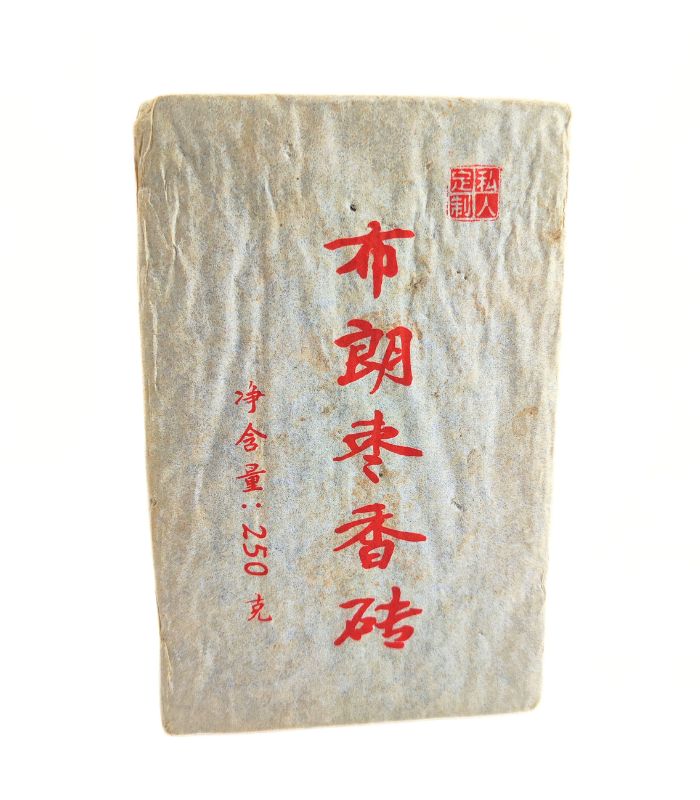 私人
定制
布朗枣香砖
净含量:250克